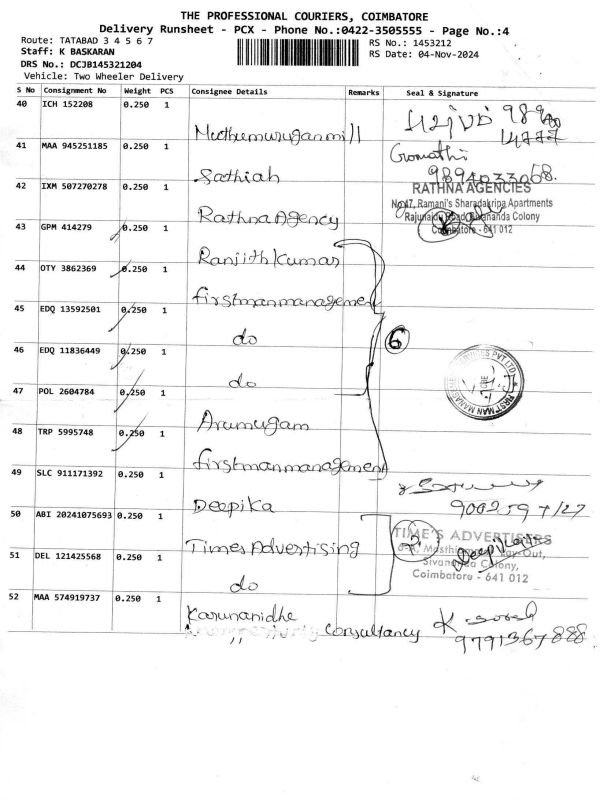 THE PROFESSIONAL COURIERS, COIMBATORE
Delivery Runsheet - PCX - Phone No.:0422-3505555 - Page No.:4
Route: TATABAD 3 4 5 6 7
Staff: K BASKARAN
DRS No.: DCJB145321204
Vehicle: Two Wheeler Delivery
RS No.: 1453212
RS Date: 04-Nov-2024
S No Consignment No Weight PCS Consignee Details Remarks Seal & Signature
40 ICH 152208 0.250 1 Muthumuruganmill
41 MAA 945251185 0.250 1 Sathiah Gomathi
9894033068.
42 IXM 507270278 0.250 1 Rathna Agency
RATHNA AGENCIES
No.47, Ramani's Sharadakripa Apartments
Rajunaidu Road, Sivananda Colony
Coimbatore - 641 012
43 GPM 414279 0.250 1 Ranjith Kumar
44 OTY 3862369 0.250 1 firstmanmanagement
45 EDQ 13592501 0.250 1 do
6
46 EDQ 11836449 0.250 1 do
FIRSTMAN MANAGE
47 POL 2604784 0.250 1 Arumugam
48 TRP 5995748 0.250 1 firstmanmanagement
49 SLC 911171392 0.250 1 Deepika
50 ABI 20241075693 0.250 1 Times Advertising
2
TIME'S ADVERTISERS
Sivananda Colony,
Coimbatore - 641 012
51 DEL 121425568 0.250 1 do
52 MAA 574919737 0.250 1 Karunanidhe
consultancy
9791367888